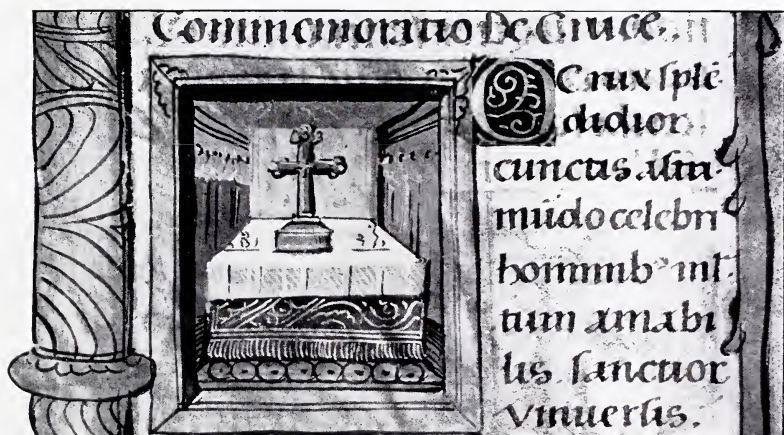 Commemoratio De Cruce.
O Crux splē
didior
cunctis astri
mūdo celebri
hominibꝰ ml
tum amabi
lis sanctior
vniuersis.